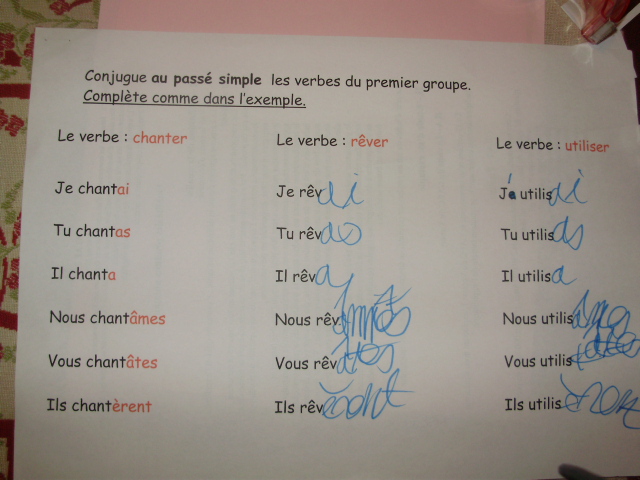 Conjugue au passé simple les verbes du premier groupe.
Complète comme dans l'exemple.
Le verbe : chanter Le verbe : rêver Le verbe : utiliser
Je chantai Je rêvai J'a utilisai
Tu chantas Tu rêvas Tu utilisas
Il chanta Il rêva Il utilisa
Nous chantâmes Nous rêv Nous utilis
Vous chantâtes Vous rêvâtes Vous utilis
Ils chantèrent Ils rêv Ils utilis